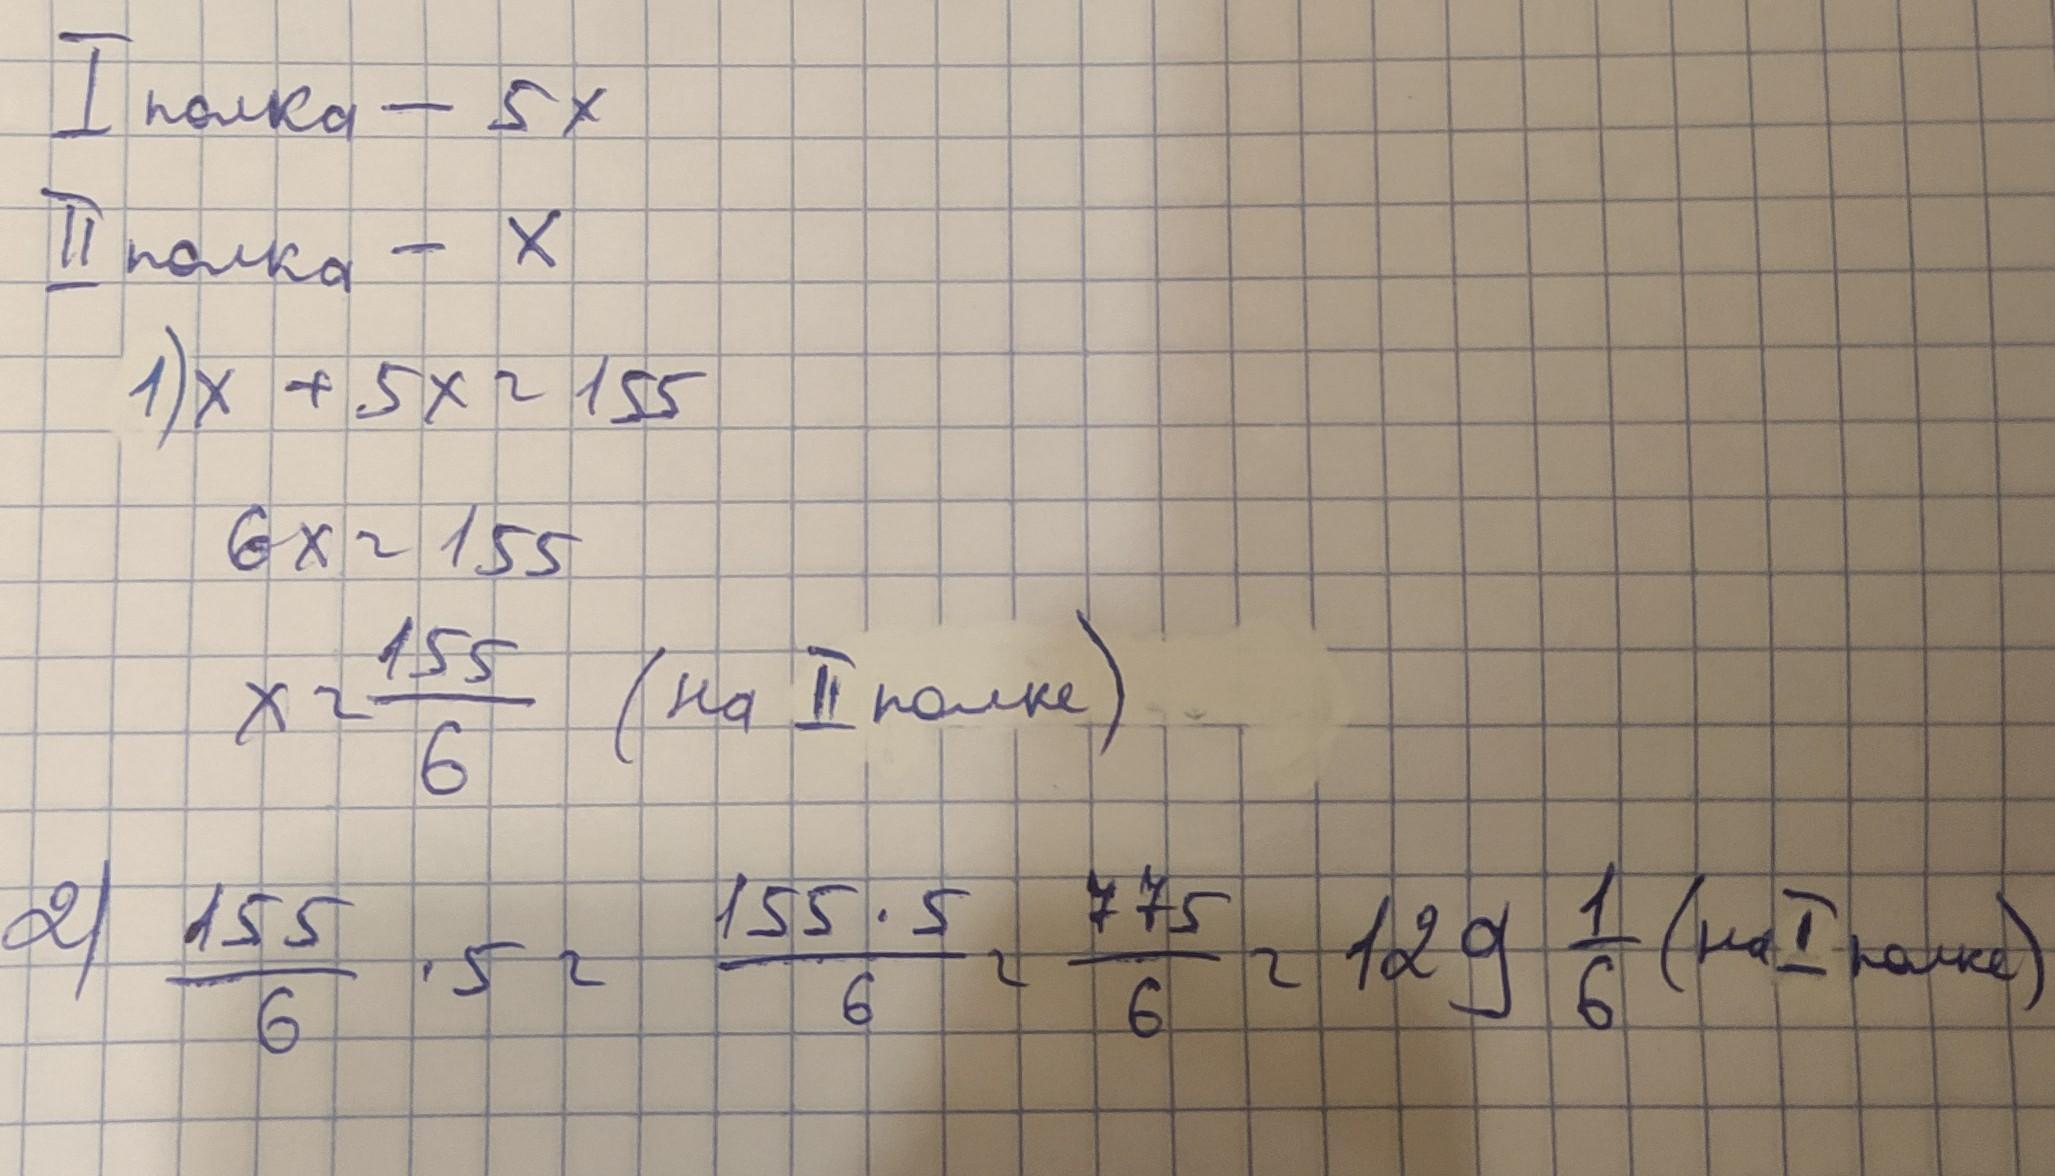 I полка – 5x
II полка – x
1) x + 5x = 155
6x = 155
x = 155/6 (на II полке)
2) 155/6 · 5 = 155 · 5/6 = 775/6 = 129 1/6 (на I полке)